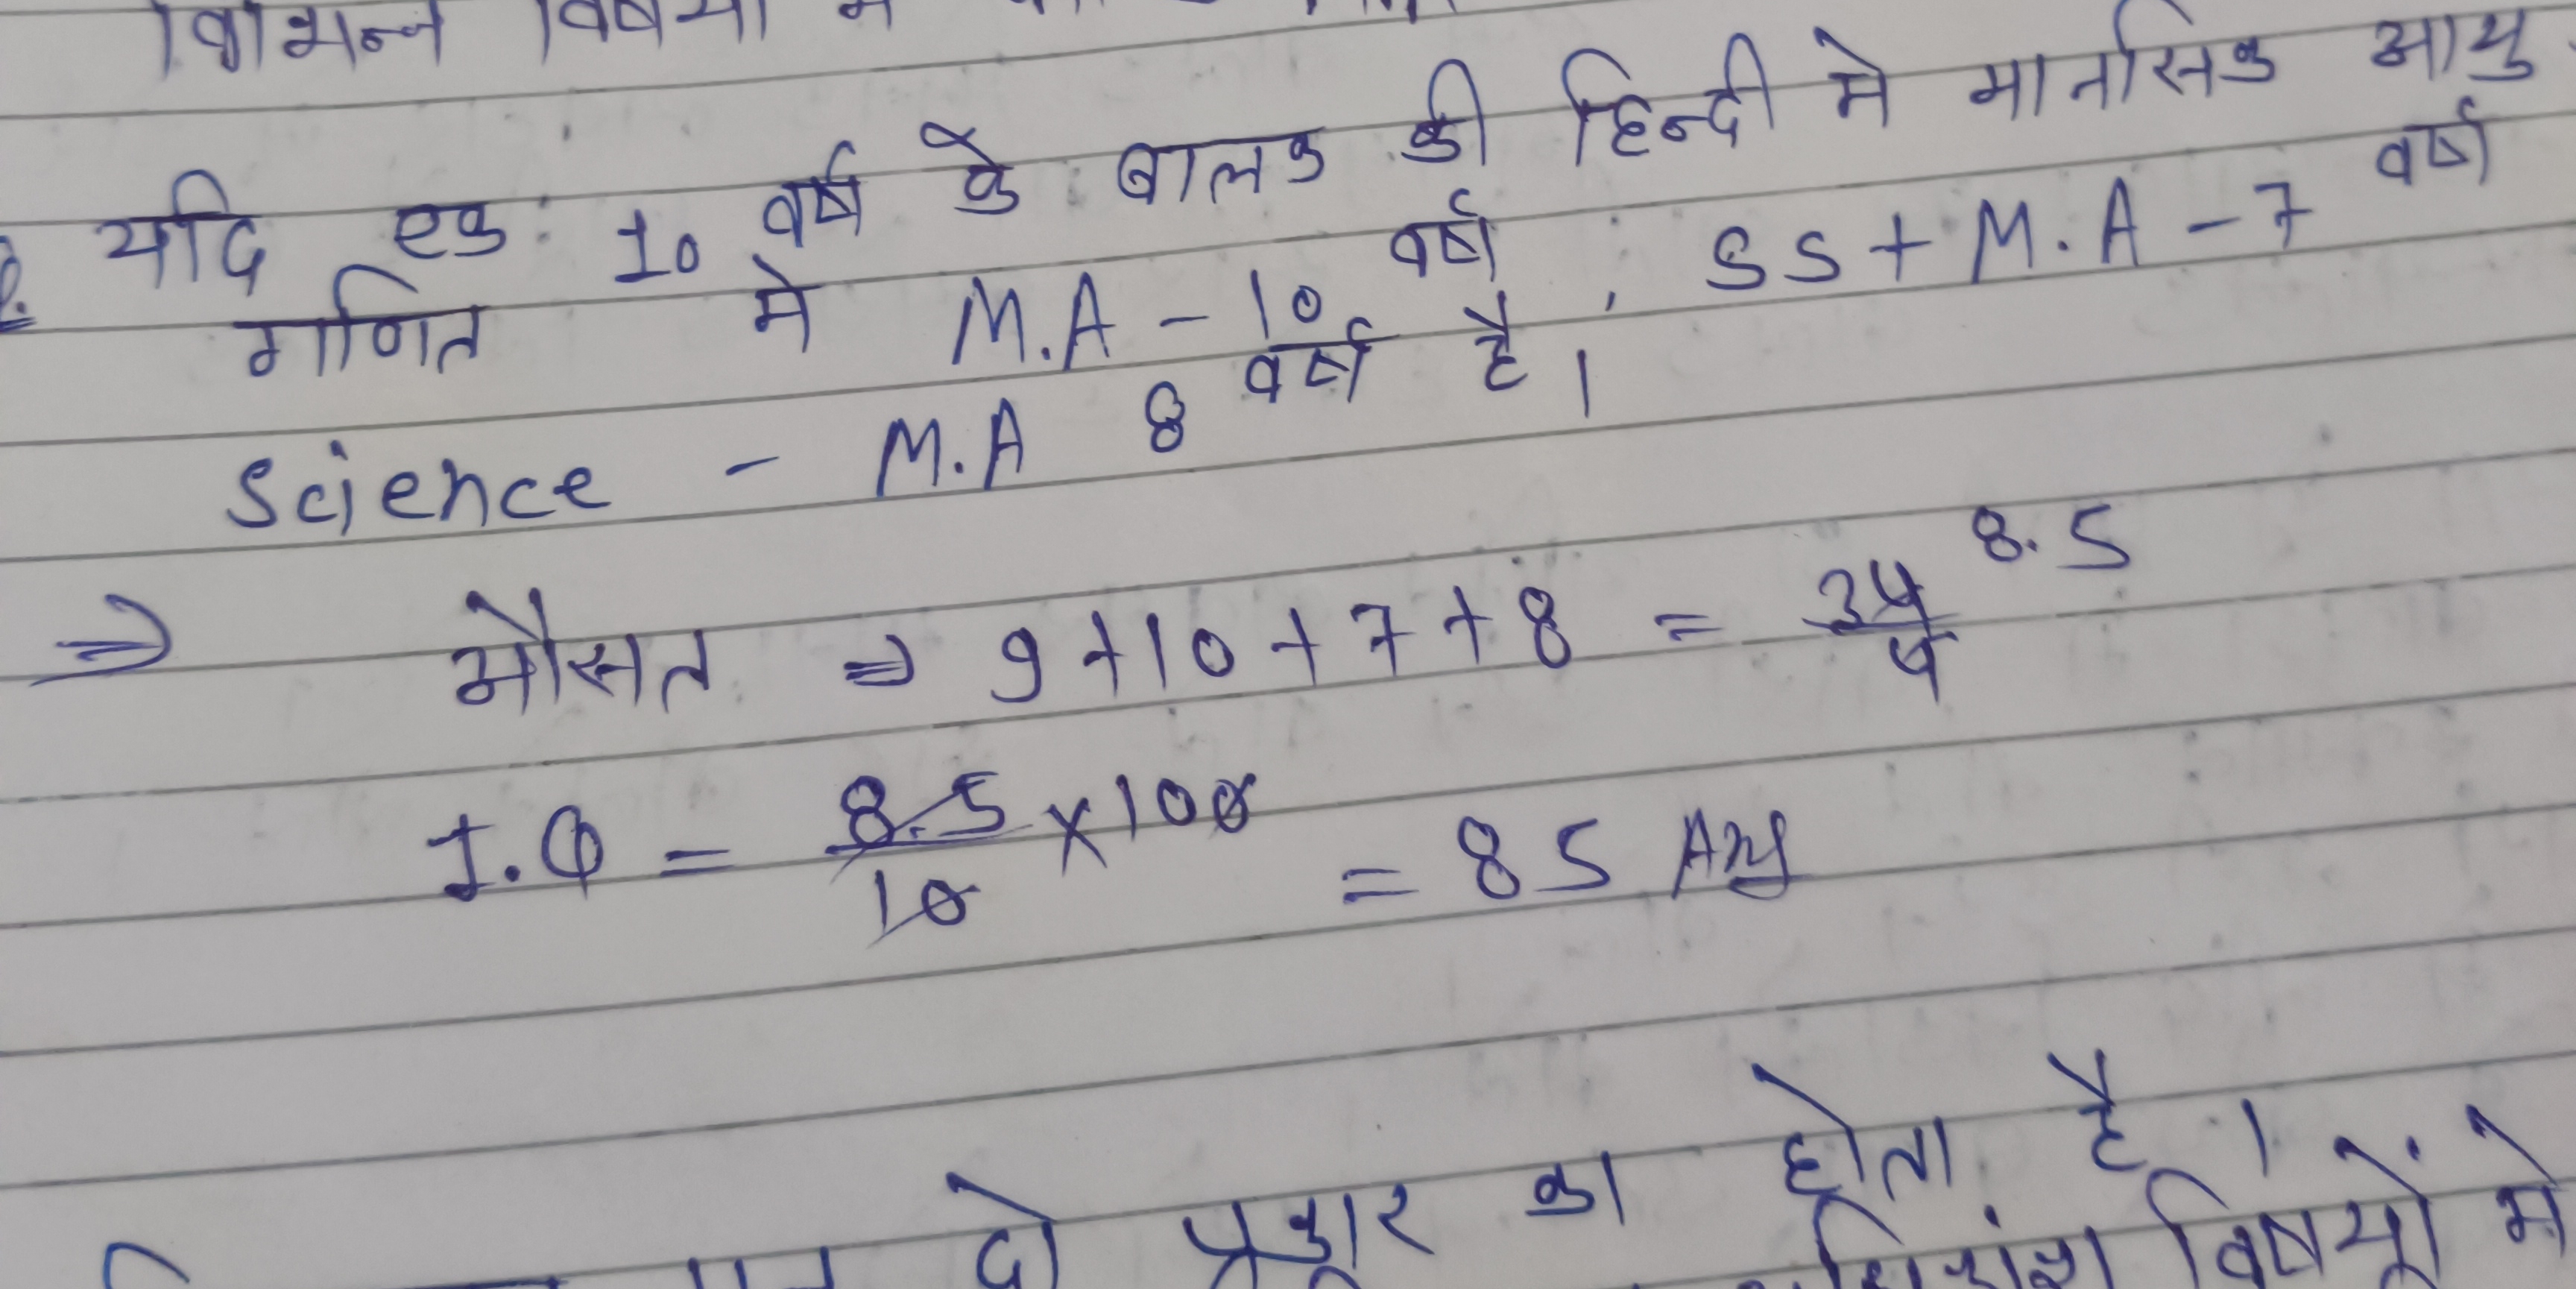 विभिन्न विषयो मे
यदि एक 10 वर्ष के बालक की हिन्दी मे मानसिक आयु
गणित मे M.A - 10 वर्ष, SS + M.A - 7 वर्ष
Science - M.A 8 वर्ष है।
⇒ औसत ⇒ 9 + 10 + 7 + 8 = 34/4 8.5
I.Q = 8.5/10 × 100 = 85 Ans
दो प्रकार का होता है।
विषयों मे